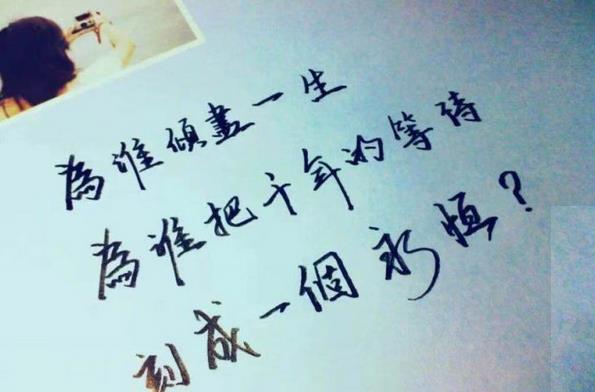 為誰傾畫一生
為誰把千年的等待
刻成一個永恒?